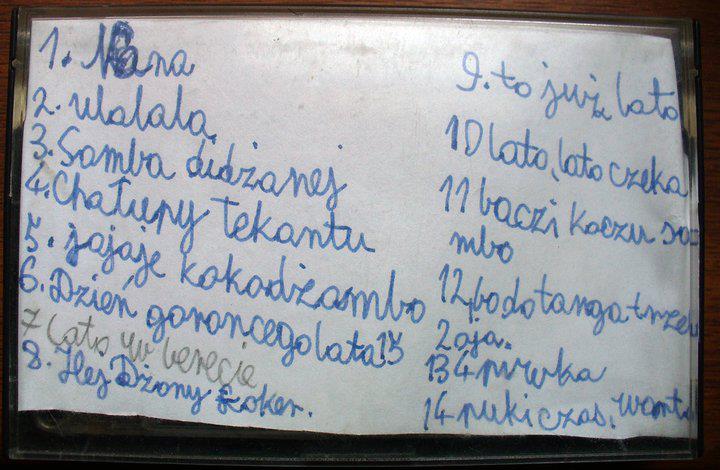 1. Nana
2. ulalala
3. Samba didżanej
4. Chałupy tekantu
5. jajaje kokodżambo
6. Dzień gorancegolata!
7 Lato w berecie
8. Hej Dżony Loker.
9. to już lato
10 lato, lato czeka
11 baczi koczu sa
mbo
12, bo do tanga trzeb
2 oja.
13 4 piwka
14 puki czas.